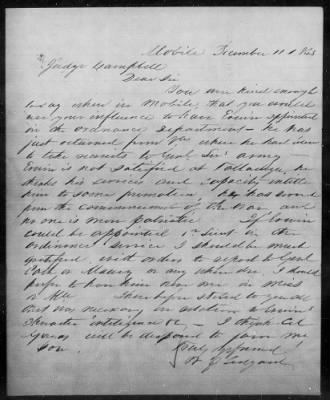 Mobile December 11 186
Judge Campbell
Dear Sir
You were kind enough
to say when in Mobile that you would
use your influence to have Erwin appointed
in the Ordnance Department — he has
just returned from where he had been
to take recruits to Genl army —
Erwin is not satisfied at Talladega he
thinks his services and capacity entitle
him to some promotion — has served
from the commencement of the War and
no one is more patriotic If Erwin
could be appointed 1st Lieut in the
ordinance service I should be much
gratified, with orders to report to Genl
or Maury or any where else. I should
prefer to have him near me in Miss
or Ala I have before stated to you all
that was necessary in relation to Erwins
Character intelligence &c — I think Col
Gorgas will be disposed to favor me
Truly yr friend